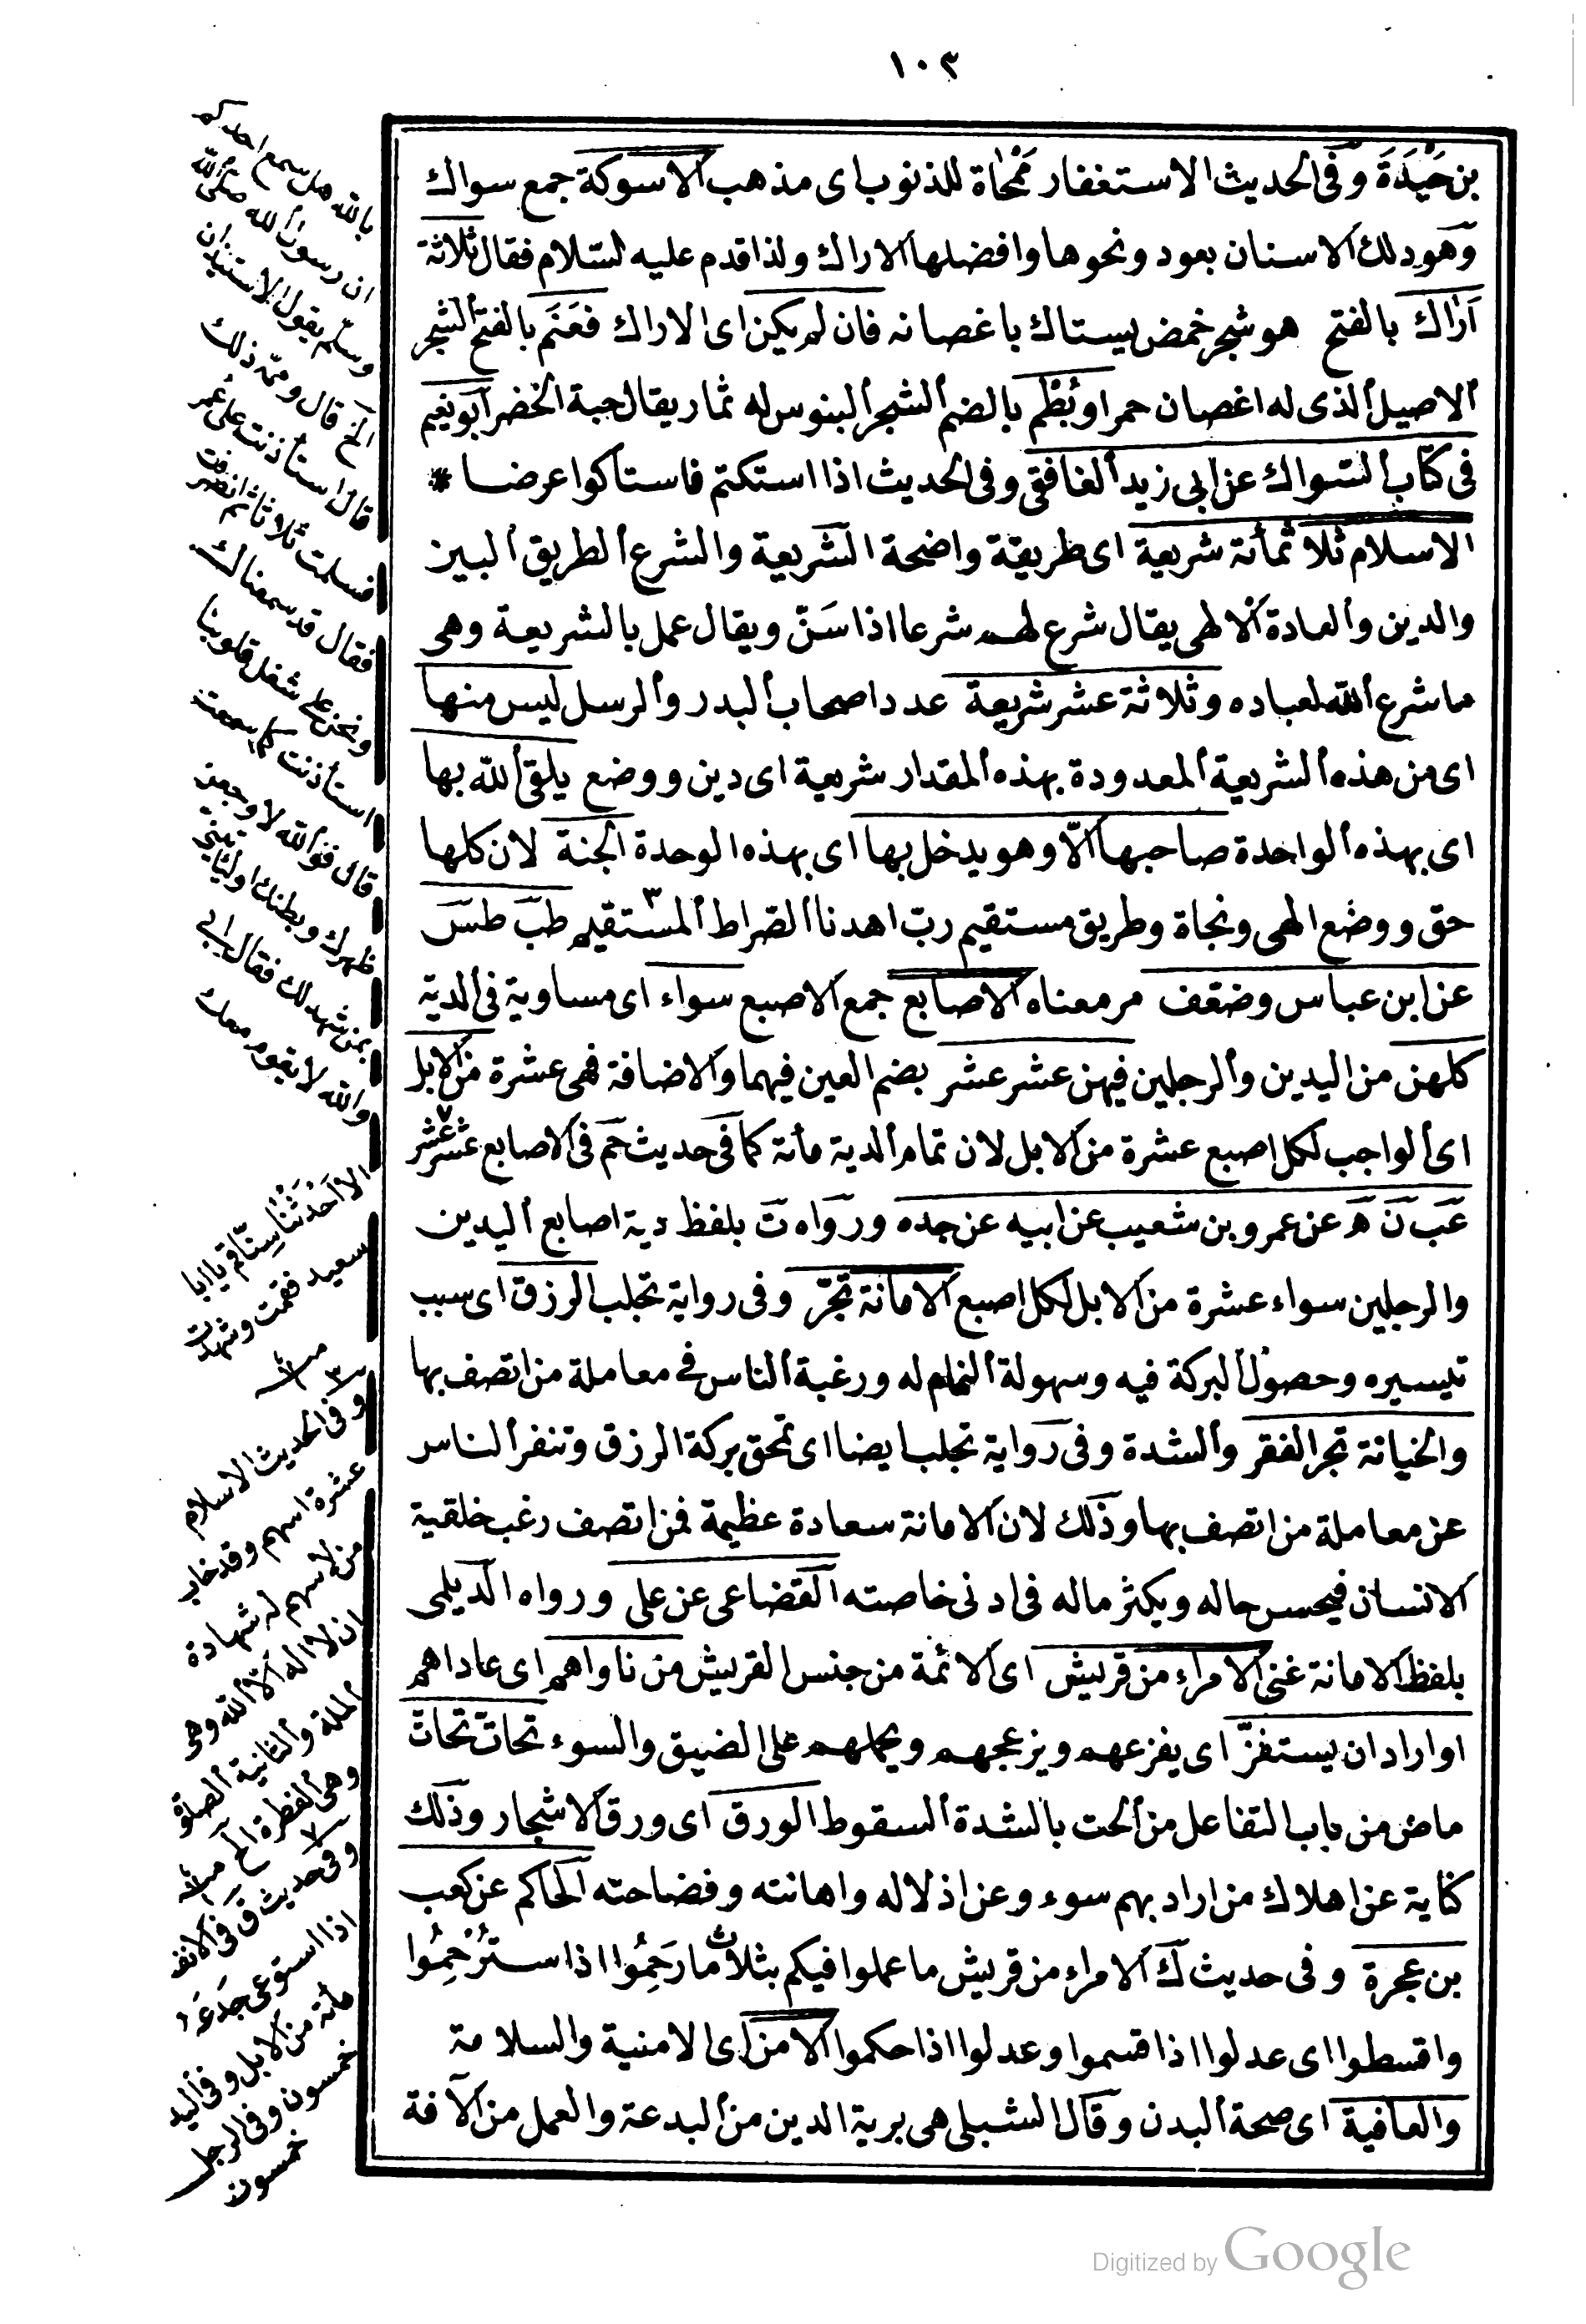 ١٠٣
بن حَيْدَةَ وفى الحديث الاستغفار مَمْحَاة للذنوب اى مذهب الاسوكة جمع سواك
وهو دلك الاسنان بعود ونحوها وافضلها الاراك ولذا قدم عليه السّلام فقال ثلاثة
اَرَاك بالفتح هو شجر خمض يستاك باغصانه فان لم يكن اى الاراك فعَنَم بالفتح الشجر
الاصيل الذى له اغصان حمر او بُطْم بالضم الشجر البنوس له ثمار يقال حبة الخضر ابو نعيم
فى كتاب السّواك عن ابى زيد الغافقى وفى الحديث اذا استكتم فاستاكوا عرضا *
الاسلام ثلاثمأئة شريعة اى طريقة واضحة الشريعة والشرع الطريق البين
والدين والعادة الالهى يقال شرع لهم شرعا اذا سَنّ ويقال عمل بالشريعة وهى
ما شرع الله لعباده وثلاثة عشر شريعة عدد اصحاب البدر والرسل ليس منها
اى من هذه الشريعة المعدودة بهذه المقدار شريعة اى دين ووضع يلقى الله بها
اى بهذه الواحدة صاحبها الّا وهو يدخل بها اى بهذه الوحدة الجنة لان كلها
حق ووضع الهى ونجاة وطريق مستقيم ربّ اهدنا الصّراط المستقيم ٣ طبّ طسّ
عن ابن عباس وضعّف مر معناه الاصابع جمع الاصبع سواء اى مساوية فى الدية
كلهن من اليدين والرجلين فيهن عشر عشر بضم العين فيهما والاضافة فهى عشرة من الابل
اى الواجب لكل اصبع عشرة من الابل لان تمام الدية مأئة كما فى حديث حم فى الاصابع عشر عشر ٧
عَب نَ هَ عن عمرو بن شعيب عن ابيه عن جده ورواه تَ بلفظ دية اصابع اليدين
والرجلين سواء عشرة من الابل لكل اصبع الامانة تجرّ وفى رواية تجلب الرزق اى سبب
تيسيره وحصول البركة فيه وسهولة النمام له ورغبة الناس فى معاملة من اتصف بها
والخيانة تجر الفقر والشدة وفى رواية تجلب ايضا اى تمحق بركة الرزق وتنفر الناس
عن معاملة من اتصف بها وذلك لان الامانة سعادة عظيمة فمن اتصف رغب خلقية
الانسان فيحسن حاله ويكثر ماله فى ادنى خاصته القضاعى عن على ورواه الديلمى
بلفظ الامانة غنى الامراء من قريش اى الائمة من جنس القريش من ناواهم اى عاداهم
او اراد ان يستفزّ اى يفزعهم ويزعجهم ويحملهم على الضيق والسوء تحاتّ تحاتّ
ماض من باب التفاعل من الحت بالشدة السقوط الورق اى ورق الاشجار وذلك
كناية عن اهلاك من اراد بهم سوء وعن اذلاله واهانته وفضاحته الحاكم عن كعب
بن عجرة وفى حديث ك الامراء من قريش ما عملوا فيكم بثلاث ما رَحِمُوا اذا ستُرْحِمُوا
واقسطوا اى عدلوا اذا قسموا وعدلوا اذا حكموا الامن اى الامنية والسلامة
والعافية اى صحة البدن وقال الشبلى هى برية الدين من البدعة والعمل من الآفة
بالله هل سمع احدكم
ان رسول الله صلى الله
وسلم يقول الاستيذان
الخ قال وممّ ذلك
قال استأذنت على عمر
فسلمت ثلاثا ثم انصرفت
فقال قد سمعناك
ونحن على شغل فلو ما
استأذنت كما سمعت
قال فوالله لاوجعن
ظهرك وبطنك او لتأتينى
بمن شهد لك فقال ابى
والله لا يقوم معك
الا اَحْدَثُنَا سِنّا قم يا ابا
سعيد فقمت وشهدت
٣ وفى الحديث الاسلام
عشرة اسهم وقد خاب
من لا سهم له شهادة
ان لا اله الا الله وهى
الملة والثانية الصلوة
وهى الفطرة الخ
٧ وفى حديث ق فى الانف
اذا استوعى جَدْعَهُ
مأئة من الابل وفى اليد
خمسون وفى الرجل
خمسون
Digitized by Google